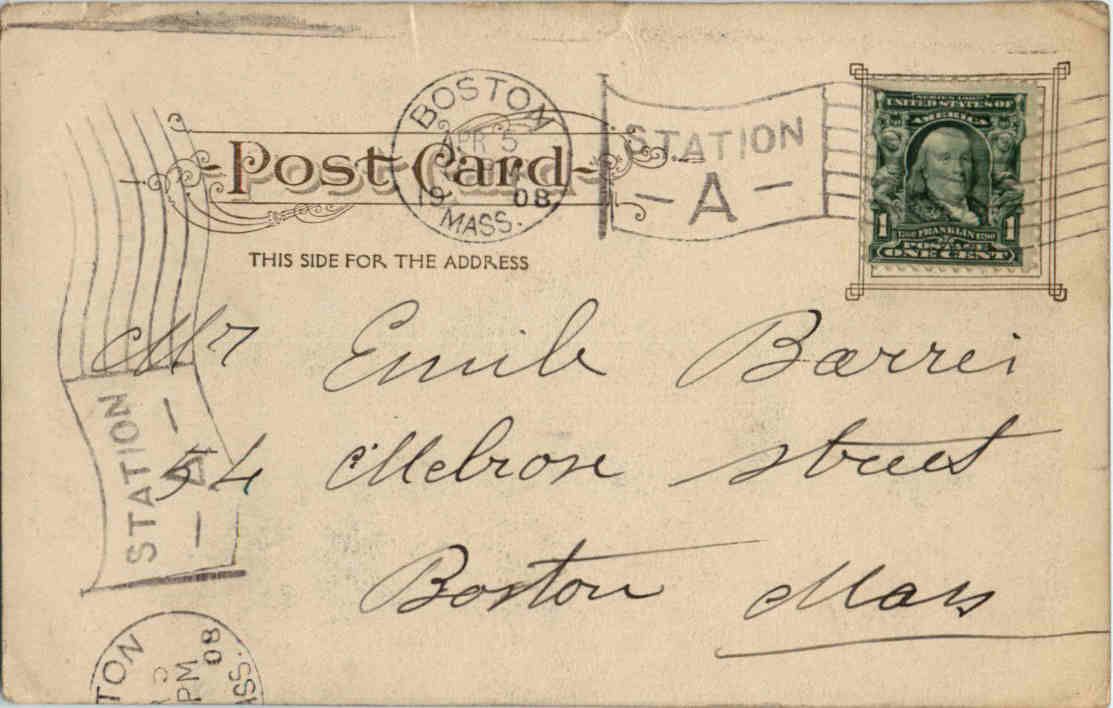 BOSTON
APR 5
19 08
MASS.
STATION
A
Post Card
THIS SIDE FOR THE ADDRESS
SERIES 1902
UNITED STATES OF
AMERICA
1 1
1706 FRANKLIN 1790
POSTAGE
ONE CENT
Mr Emile Barrei
54 Melrose street
Boston Mass
STATION
A
TON
PM
08
ASS.